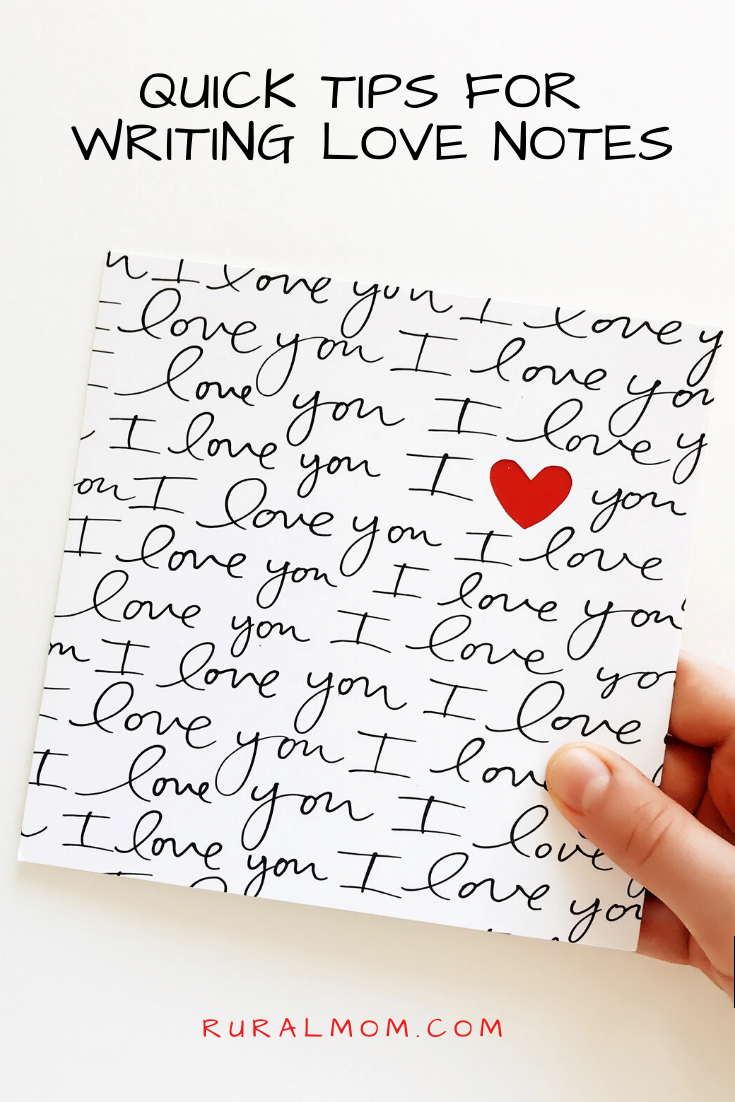 QUICK TIPS FOR
WRITING LOVE NOTES
I love you I love y
I love you I love you
I love you I love y
I love you I ♥ you
ou I love you I love
I love you I love you
love you I love yo
I love you I love
I love you I lov
I love you I love
I love you I love you
RURALMOM.COM